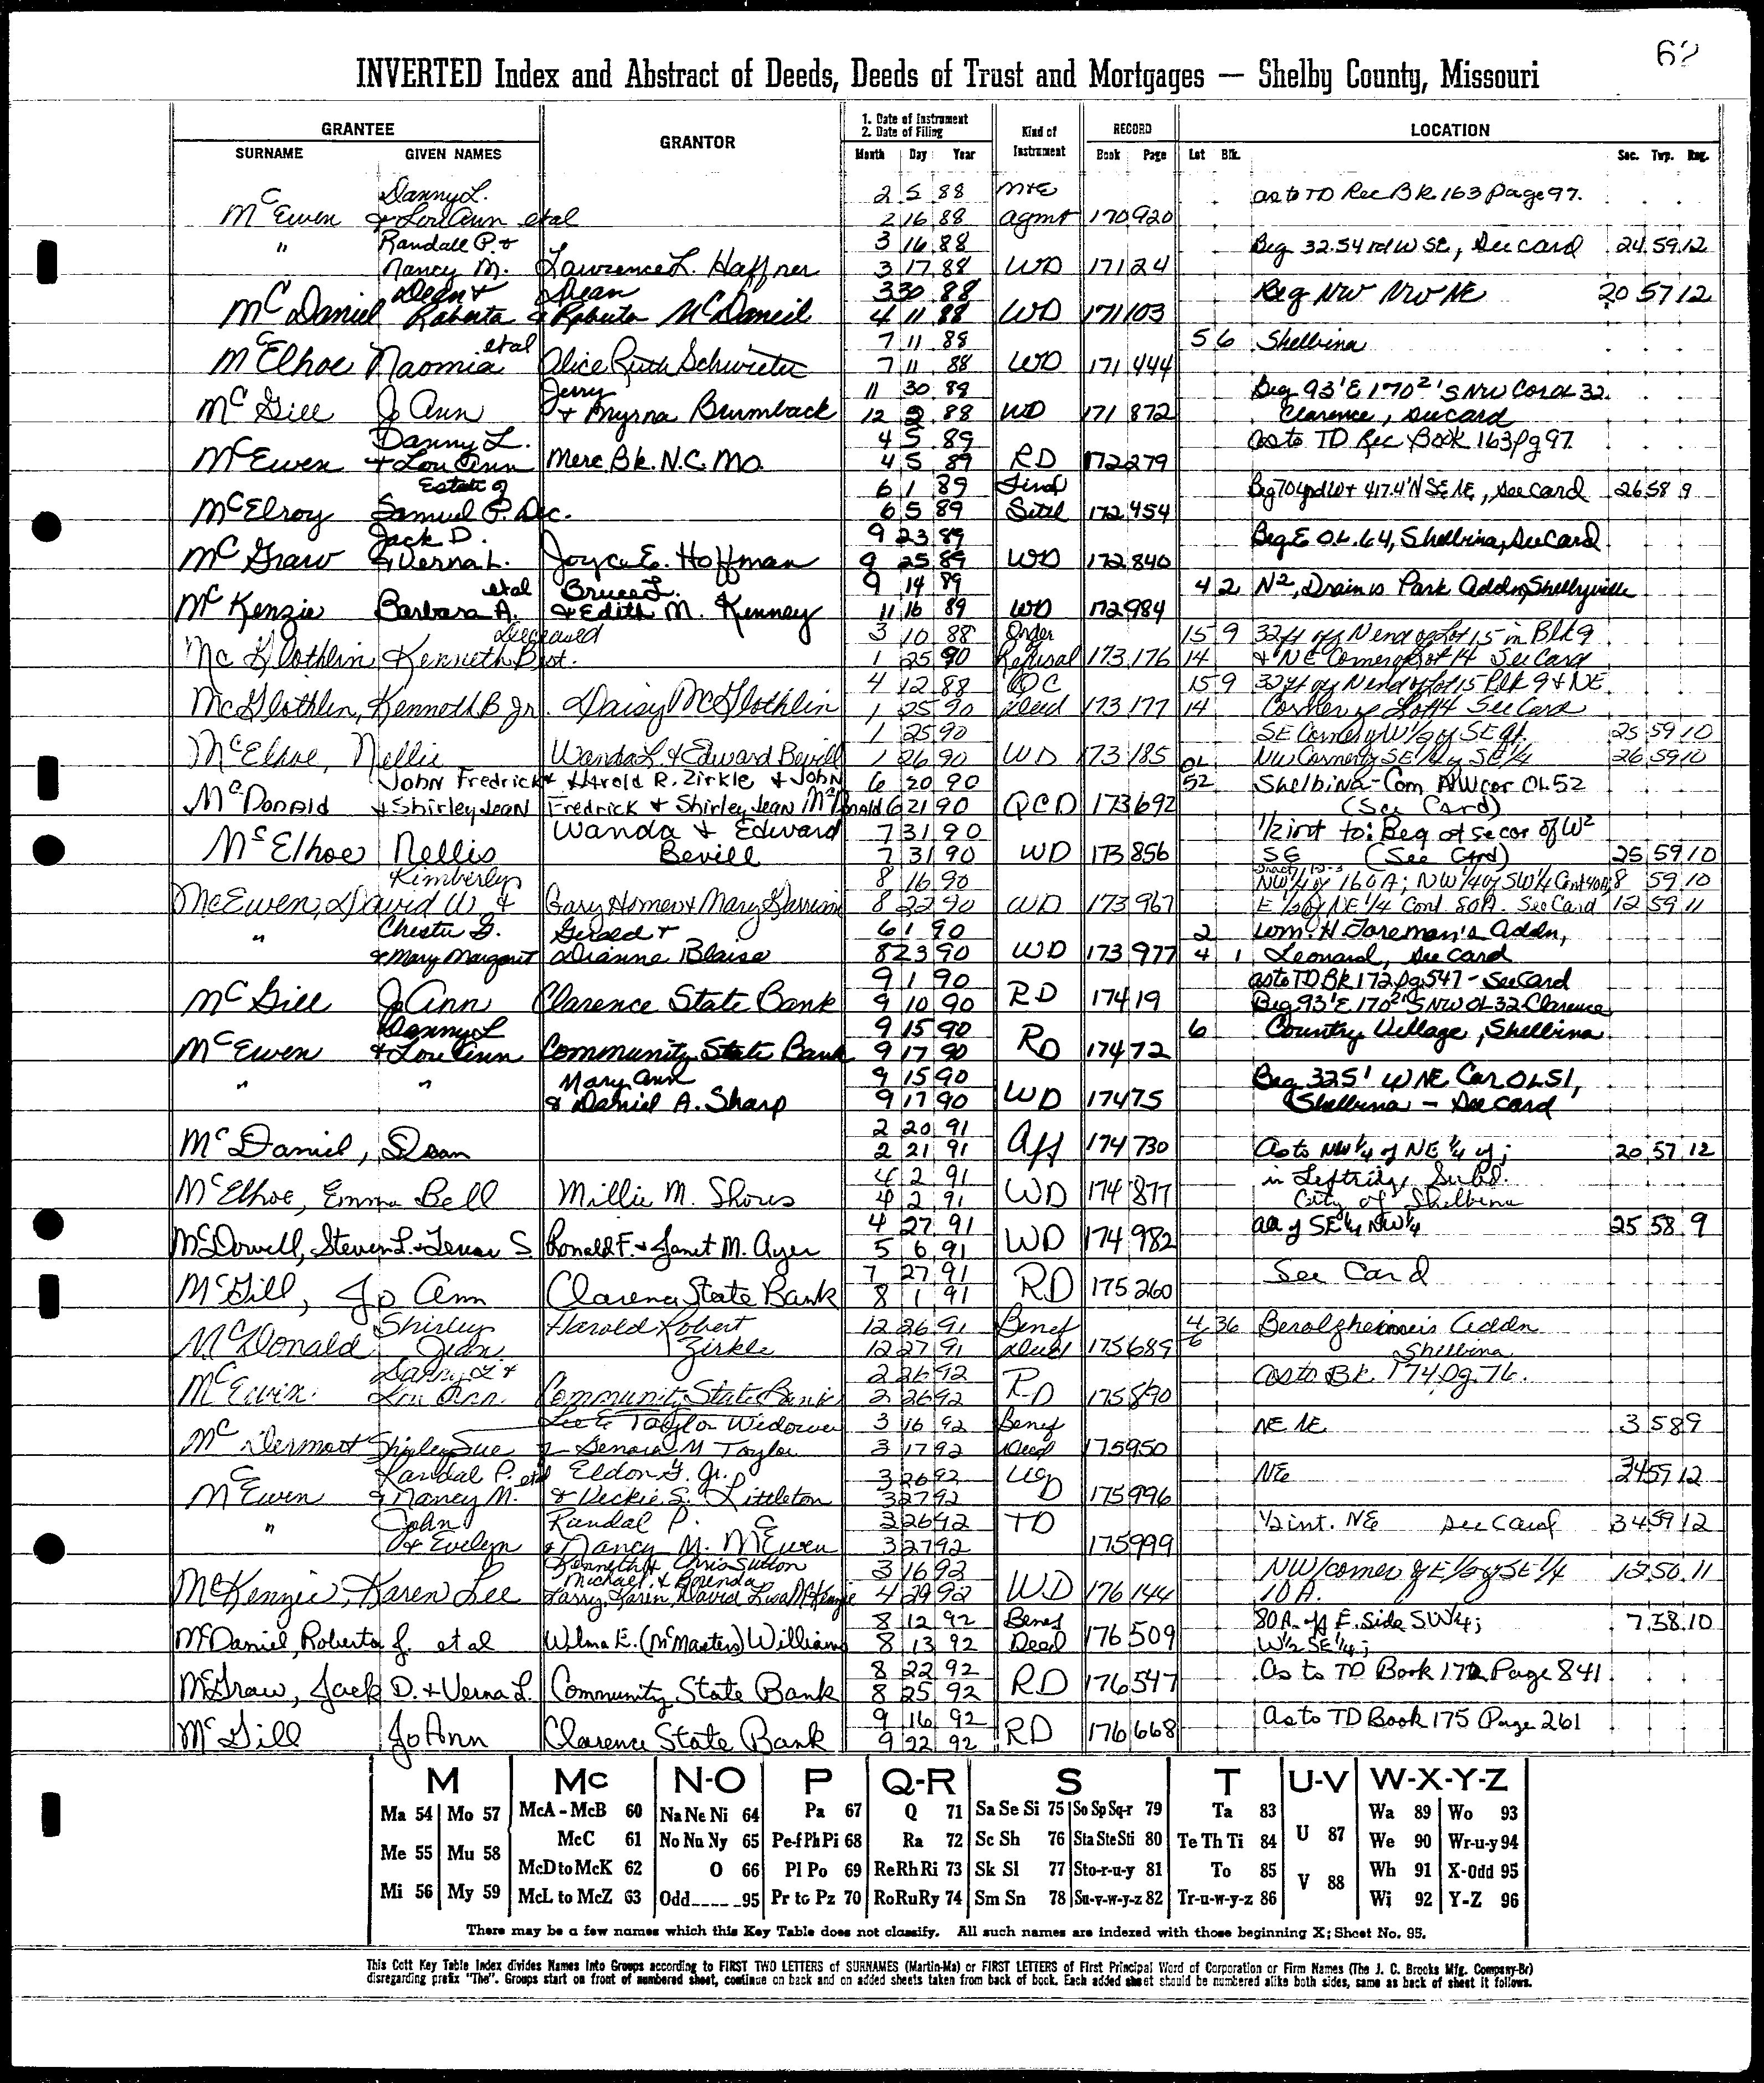 62
INVERTED Index and Abstract of Deeds, Deeds of Trust and Mortgages — Shelby County, Missouri
GRANTEE GRANTOR 1. Date of Instrument 2. Date of Filing Kind of Instrument RECORD LOCATION
SURNAME GIVEN NAMES Month Day Year Book Page Lot Blk. Sec. Twp. Rng.
Danny L. 2 5 88 M+E as to TD Rec Bk 163 page 97.
McEwen & Lou Ann etal 2 16 88 agmt 170 920
" Randall P. & 3 16 88 Beg 32.54 rd W SE, See card 24 59 12
Nancy M. Lawrence L. Haffner 3 17 88 WD 171 24
Dean & Dean 3 30 88 Beg NW NW NE 20 57 12
McDaniel Roberta & Roberta McDaniel 4 11 88 WD 171 103
etal 7 11 88 5 6 Shelbina
McElhoe Naomia Alice Ruth Schwieter 7 11 88 WD 171 444
Jerry 11 30 89 Beg 93' E 170²'S NW Cor OL 32.
McGill Jo Ann & Myrna Brumback 12 2 88 WD 171 872 Clarence, See card
Danny L. 4 5 89 as to TD Rec Book 163 pg 97.
McEwen & Lou Ann Merc. Bk. N.C. Mo. 4 5 89 RD 172 279
Estate of 6 1 89 Final Beg 704 rd W & 417.4' N SE NE, See card 26 58 9
McElroy Samuel P. Dec. 6 5 89 Sttl 172 454
Jack D. 9 23 89 Beg E O.L. 64, Shelbina, See Card
McGraw & Verna L. Joyce E. Hoffman 9 25 89 WD 172 840
etal Bruce L. 9 14 89 4 2 N², Drain is Park Addn, Shelbyville
McKenzie Barbara A. & Edith M. Kenney 11 16 89 WD 172 984
Deceased 3 10 88 Order 15 9 32 ft off N end of Lot 15 in Blk 9
McGlothlin Kenneth B. 1 25 90 Refusal 173 176 14 & NE Corner of Lot 14 See Card
4 12 88 QC 15 9 32 ft off N end of Lot 15 Blk 9 & NE
McGlothlin, Kenneth B Jr. Daisy McGlothlin 1 25 90 Deed 173 177 14 Corner of Lot 14 See Card
1 25 90 SE Corner of W 1/2 of SE qt. 25 59 10
McElhoe, Nellie Wanda L. & Edward Bevill 1 26 90 WD 173 185 NW Corner of SE 1/4 of SE 1/4 26 59 10
John Fredrick & Harold R. Zirkle & John 6 20 90 OL 52 Shelbina - Com NW cor OL 52
McDonald & Shirley Jean Fredrick & Shirley Jean McDonald 6 21 90 QCD 173 692 (See Card)
Wanda & Edward 7 31 90 1/2 int to: Beg at se cor of W²
McElhoe Nellis Bevill 7 31 90 WD 173 856 SE (See Card) 25 59 10
Kimberly 8 16 90 NW 1/4 of 160 A; NW 1/4 of SW 1/4 Cont 40 A; 8 59 10
McEwen, David W & Gary Homer & Mary Garrison 8 22 90 WD 173 967 E 1/2 of NE 1/4 Cont. 80 A. See Card 12 59 11
" Chester G. Gerald & 6 1 90 2 Wm. H Foreman's Addn,
& Mary Margaret Dianne Blaise 8 23 90 WD 173 977 4 1 Leonard, See Card
9 1 90 as to TD Bk 172 pg 547 - See Card
McGill Jo Ann Clarence State Bank 9 10 90 RD 174 19 Beg 93' E 170²'S NW OL 32 Clarence
Danny L 9 15 90 6 Country Village, Shelbina
McEwen & Lou Ann Community State Bank 9 17 90 RD 174 72
" " Mary Ann 9 15 90 Beg 325' W NE Cor OL 51,
& Daniel A. Sharp 9 17 90 WD 174 75 Shelbina - See card
2 20 91
McDaniel, Dean 2 21 91 Aff 174 730 As to NW 1/4 of NE 1/4 of; 20 57 12
4 2 91 in Leftridge Subd.
McElhoe, Emma Bell Millie M. Shores 4 2 91 WD 174 877 City of Shelbina
4 27 91 all of SE 1/4 NW 1/4 25 58 9
McDowell, Steven L. & S. Ronald F. & Janet M. Ayer 5 6 91 WD 174 982
7 27 91 See Card
McGill, Jo Ann Clarence State Bank 8 1 91 RD 175 260
Shirley Harold Robert 12 26 91 Benef 4 36 Berolzheimer's Addn
McDonald Jean Zirkle 12 27 91 Deed 175 689 6 Shelbina
Danny L & 2 26 92 As to Bk. 174 Pg. 76.
McEwen Lou Ann Community State Bank 2 26 92 RD 175 890
Lee E Taylor Widower 3 16 92 Benef NE NE 3 58 9
McDermott Shirley Sue & Genora M Taylor 3 17 92 Deed 175 950
Randal P. etal Eldon G. Jr. 3 26 92 WD NE 34 59 12
McEwen & Nancy M. & Vickie S. Littleton 3 27 92 175 996
" John Randal P. 3 26 92 TD 1/2 int. NE See Card 34 59 12
& Evelyn & Nancy M. McEwen 3 27 92 175 999
Kenneth & Chris Sutton 3 16 92 NW/corner of E 1/2 of SE 1/4 12 56 11
Michael & Brenda
McKenzie, Karen Lee Larry, Karen, David Lisa McKenzie 4 29 92 WD 176 144 10 A.
8 12 92 Benef 80 A. off E. Side SW 1/4; 7 58 10
McDaniel, Roberta J. et al Wilma E. (McMasters) Williams 8 13 92 Deed 176 509 W 1/2 SE 1/4;
8 22 92 As to TD Book 172 Page 841
McGraw, Jack D. & Verna L. Community State Bank 8 25 92 RD 176 547
9 16 92 As to TD Book 175 Page 261
McGill JoAnn Clarence State Bank 9 22 92 RD 176 668
M Mc N-O P Q-R S T U-V W-X-Y-Z
Ma 54 Mo 57 McA - McB 60 Na Ne Ni 64 Pa 67 Q 71 Sa Se Si 75 So Sp Sq-r 79 Ta 83 U 87 Wa 89 Wo 93
Me 55 Mu 58 McC 61 No Nu Ny 65 Pe-f Ph Pi 68 Ra 72 Sc Sh 76 Sta Ste Sti 80 Te Th Ti 84 V 88 We 90 Wr-u-y 94
McD to McK 62 O 66 Pl Po 69 Re Rh Ri 73 Sk Sl 77 Sto-r-u-y 81 To 85 Wh 91 X-Odd 95
Mi 56 My 59 McL to McZ 63 Odd 95 Pr to Pz 70 Ro Ru Ry 74 Sm Sn 78 Su-v-w-y-z 82 Tr-u-w-y-z 86 Wi 92 Y-Z 96
There may be a few names which this Key Table does not classify. All such names are indexed with those beginning X; Sheet No. 95.
This Cott Key Table Index divides Names Into Groups according to FIRST TWO LETTERS of SURNAMES (Martin-Ma) or FIRST LETTERS of First Principal Word of Corporation or Firm Names (The J. C. Brooks Mfg. Company-Br)
disregarding prefix "The". Groups start on front of numbered sheet, continue on back and on added sheets taken from back of book. Each added sheet should be numbered alike both sides, same as back of sheet it follows.